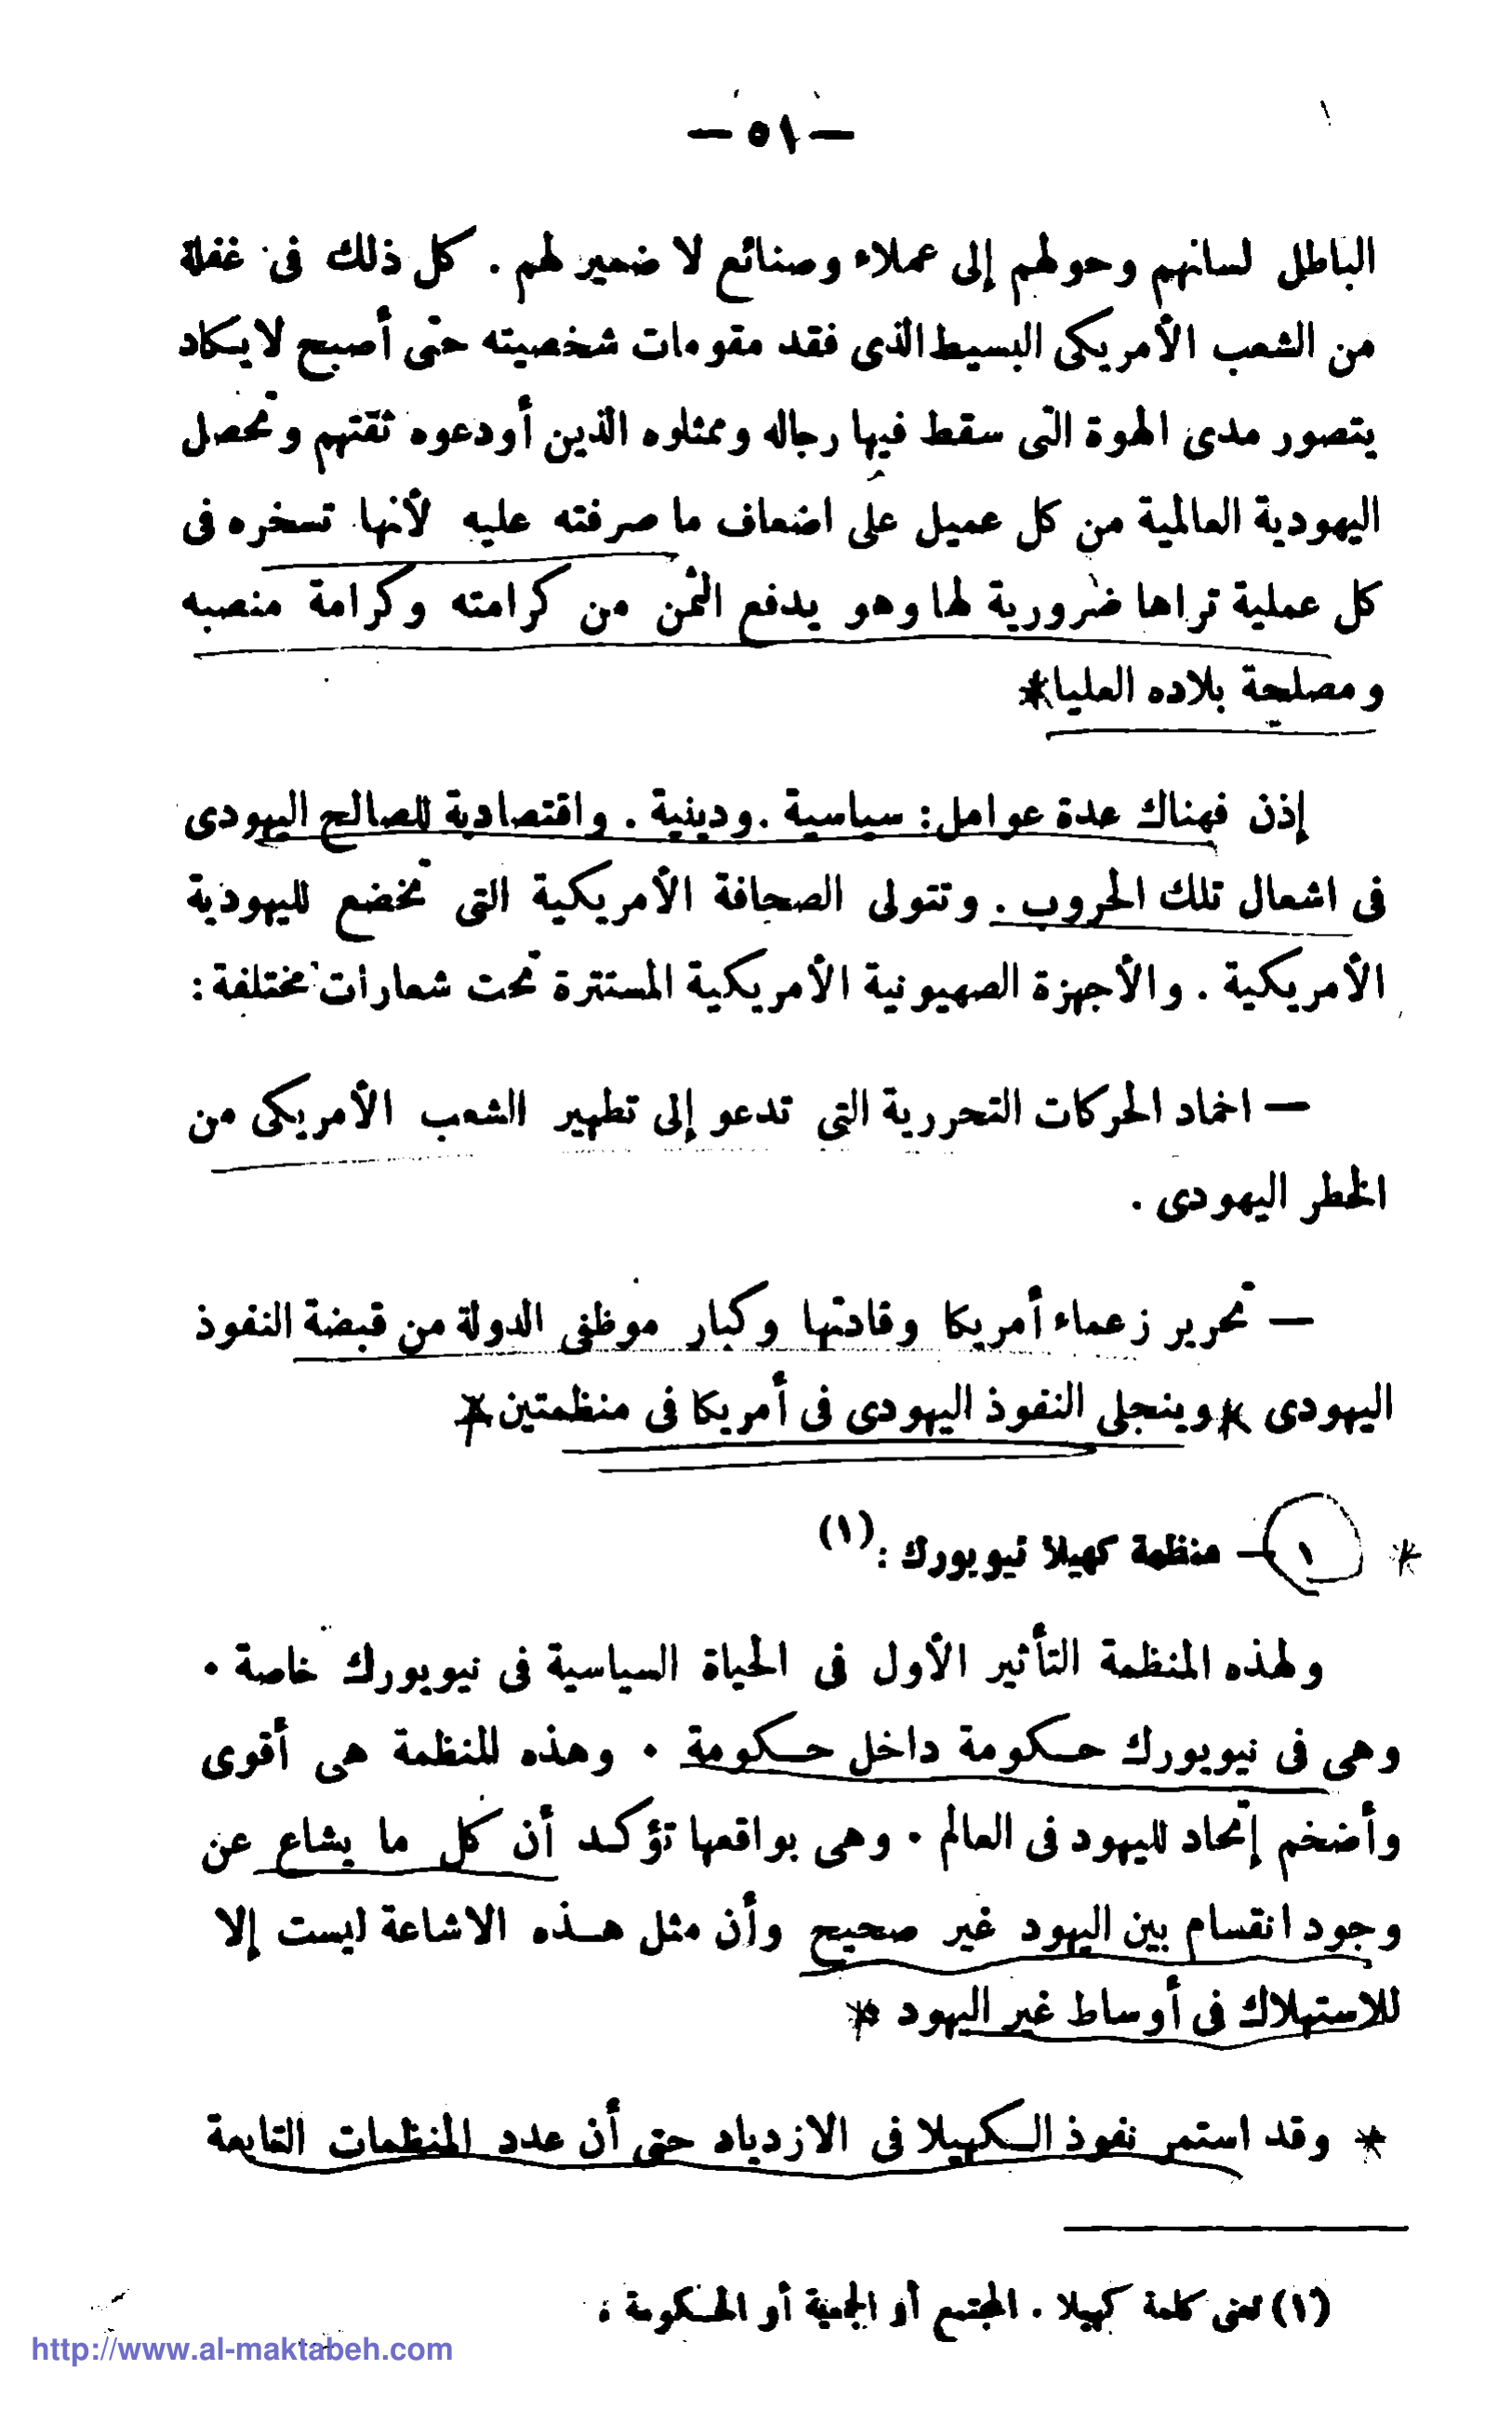 — ٥١ —
الباطل لسانهم وحولهم إلى عملاء وصنائع لا ضمير لهم . كل ذلك فى غفلة
من الشعب الأمريكى البسيط الذى فقد مقومات شخصيته حتى أصبح لايكاد
يتصور مدى الهوة التى سقط فيها رجاله وممثلوه الذين أودعوه ثقتهم وتحصل
اليهودية العالمية من كل عميل على اضعاف ما صرفته عليه لأنها تسخره فى
كل عملية تراها ضرورية لها وهو يدفع الثمن من كرامته وكرامة منصبه
ومصلحة بلاده العليا*
إذن فهناك عدة عوامل: سياسية . ودينية . واقتصادية للصالح اليهودى
فى اشعال تلك الحروب . وتتولى الصحافة الأمريكية التى تخضع لليهودية
الأمريكية . والأجهزة الصهيونية الأمريكية المستترة تحت شعارات مختلفة :
— اخماد الحركات التحررية التى تدعو إلى تطهير الشعب الأمريكى من
الخطر اليهودى .
— تحرير زعماء أمريكا وقادتها وكبار موظفى الدولة من قبضة النفوذ
اليهودى * وينجلى النفوذ اليهودى فى أمريكا فى منظمتين *
* ١ — منظمة كهيلا نيويورك : (١)
ولهذه المنظمة التأثير الأول فى الحياة السياسية فى نيويورك خاصة .
وهى فى نيويورك حكومة داخل حكومة . وهذه للنظمة هى أقوى
وأضخم إتحاد لليهود فى العالم . وهى بواقعها تؤكد أن كل ما يشاع عن
وجود انقسام بين اليهود غير صحيح وأن مثل هذه الاشاعة ليست إلا
للاستهلاك فى أوساط غير اليهود *
* وقد استمر نفوذ الكهيلا فى الازدياد حتى أن عدد المنظمات التابعة
(١) تعنى كلمة كهيلا . المجتمع أو الجمعية أو الحكومة .
http://www.al-maktabeh.com